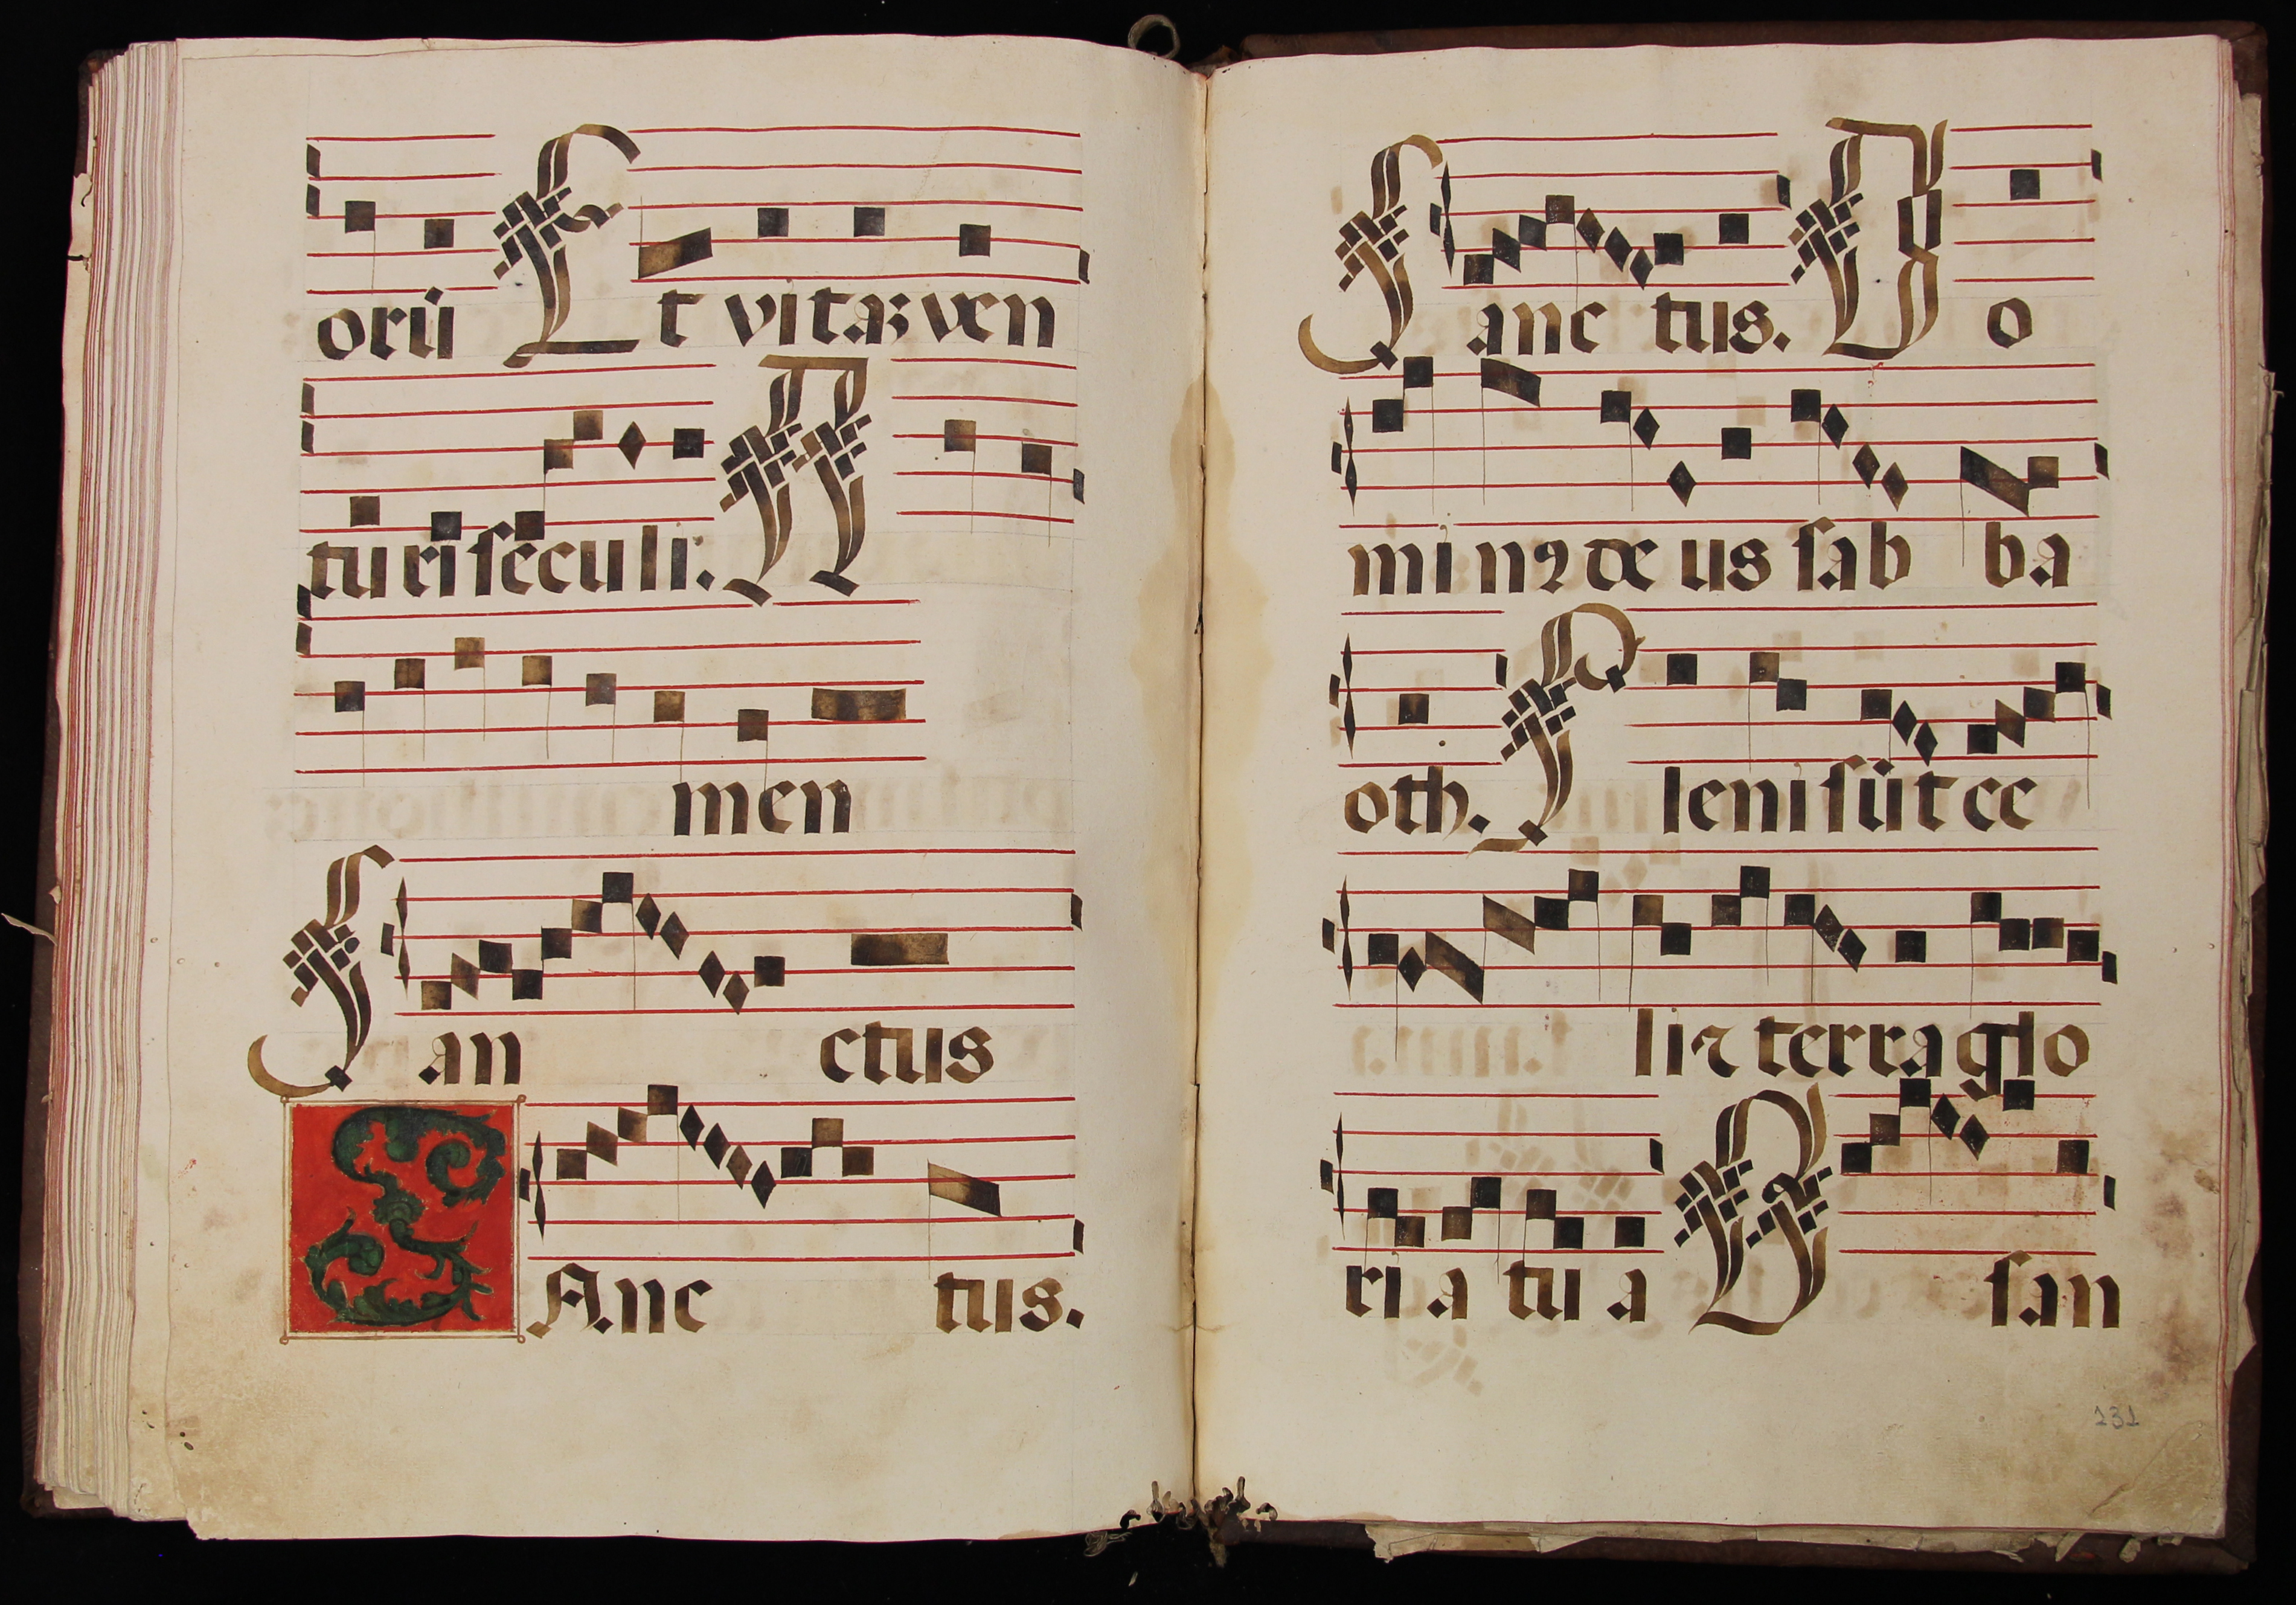 orū Et vitaꝫ ven
turi seculi. A
men
San ctus
SAnc tus.
Sanc tus. Do
minꝰ de us sab ba
oth. Pleni sūt ce
li ⁊ terra glo
ri a tu a O san
131